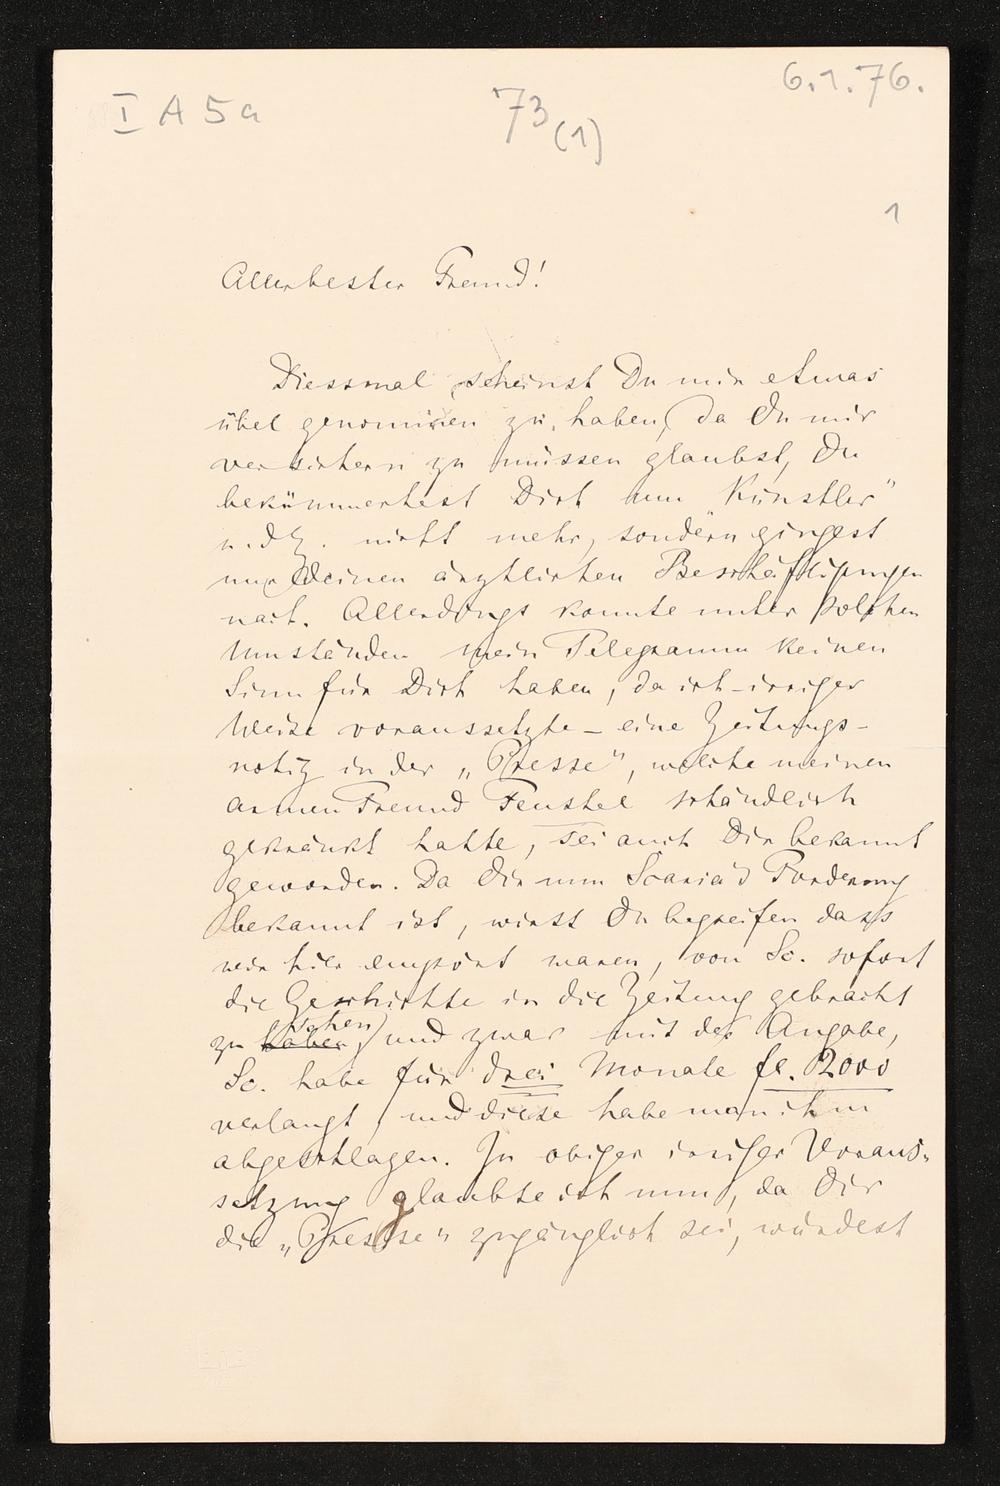 I A 5a
73
(1)
6.1.76.
1
Allerbester Freund!
Diessmal scheinst Du mir etwas
übel genommen zu haben, da Du mir
versichern zu müssen glaubst, Du
bekümmertest Dich um „Künstler"
u.d.g. nicht mehr, sondern gingest
nur Deinen ärztlichen Beschäftigungen
nach. Allerdings konnte unter solchen
Umständen mein Telegramm keinen
Sinn für Dich haben, da ich – irriger
Weise voraussetzte – eine Zeitungs-
notiz in der „Presse", welche meinen
armen Freund schändlich
gekränkt hatte, sei auch Dir bekannt
geworden. Da Dir nun Scaria's Forderung
bekannt ist, wirst Du begreifen dass
wir hier empört waren, von Sc. sofort
die Geschichte in die Zeitung gebracht
zu haben sehen, und zwar mit der Angabe,
Sc. habe für drei Monate fl. 2000
verlangt, und diese habe man ihm
abgeschlagen. In obiger irriger Voraus-
setzung glaubte ich nun, da Dir
die „Presse" zugänglich sei, würdest